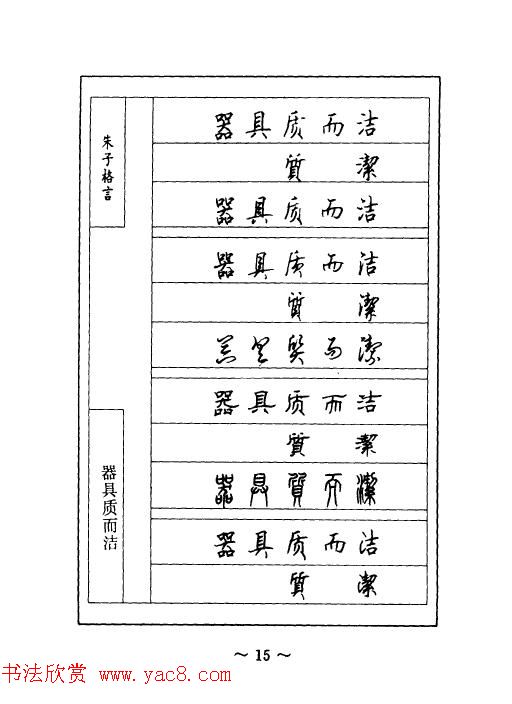 朱子格言
器具质而洁
器具质而洁
質 潔
器具质而洁
器具质而洁
質 潔
器具質而潔
器具质而洁
質 潔
器具質而潔
器具质而洁
質 潔
~ 15 ~
书法欣赏 www.yac8.com